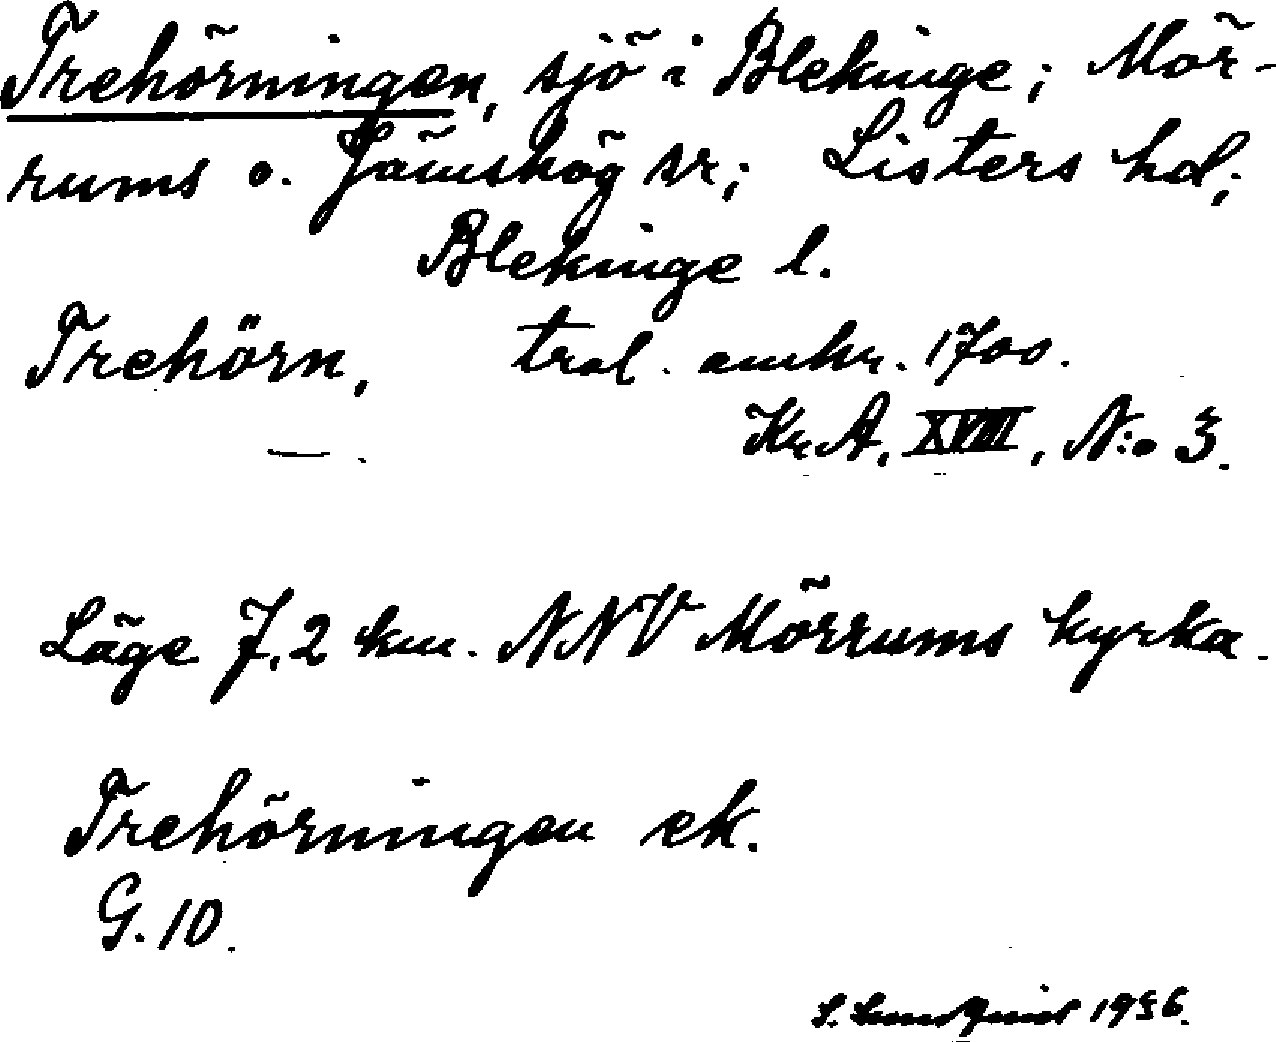 Trehörningen, sjö i Blekinge; Mör-
rums o. Jämshög sr; Listers hd;
Blekinge l.
Trehörn, trol. omkr. 1700.
Kr.A. XVIII, N:o 3.
Läge 7,2 km. NNV Mörrums kyrka.
Trehörningen ek.
G. 10.
S. Lundquist 1936.